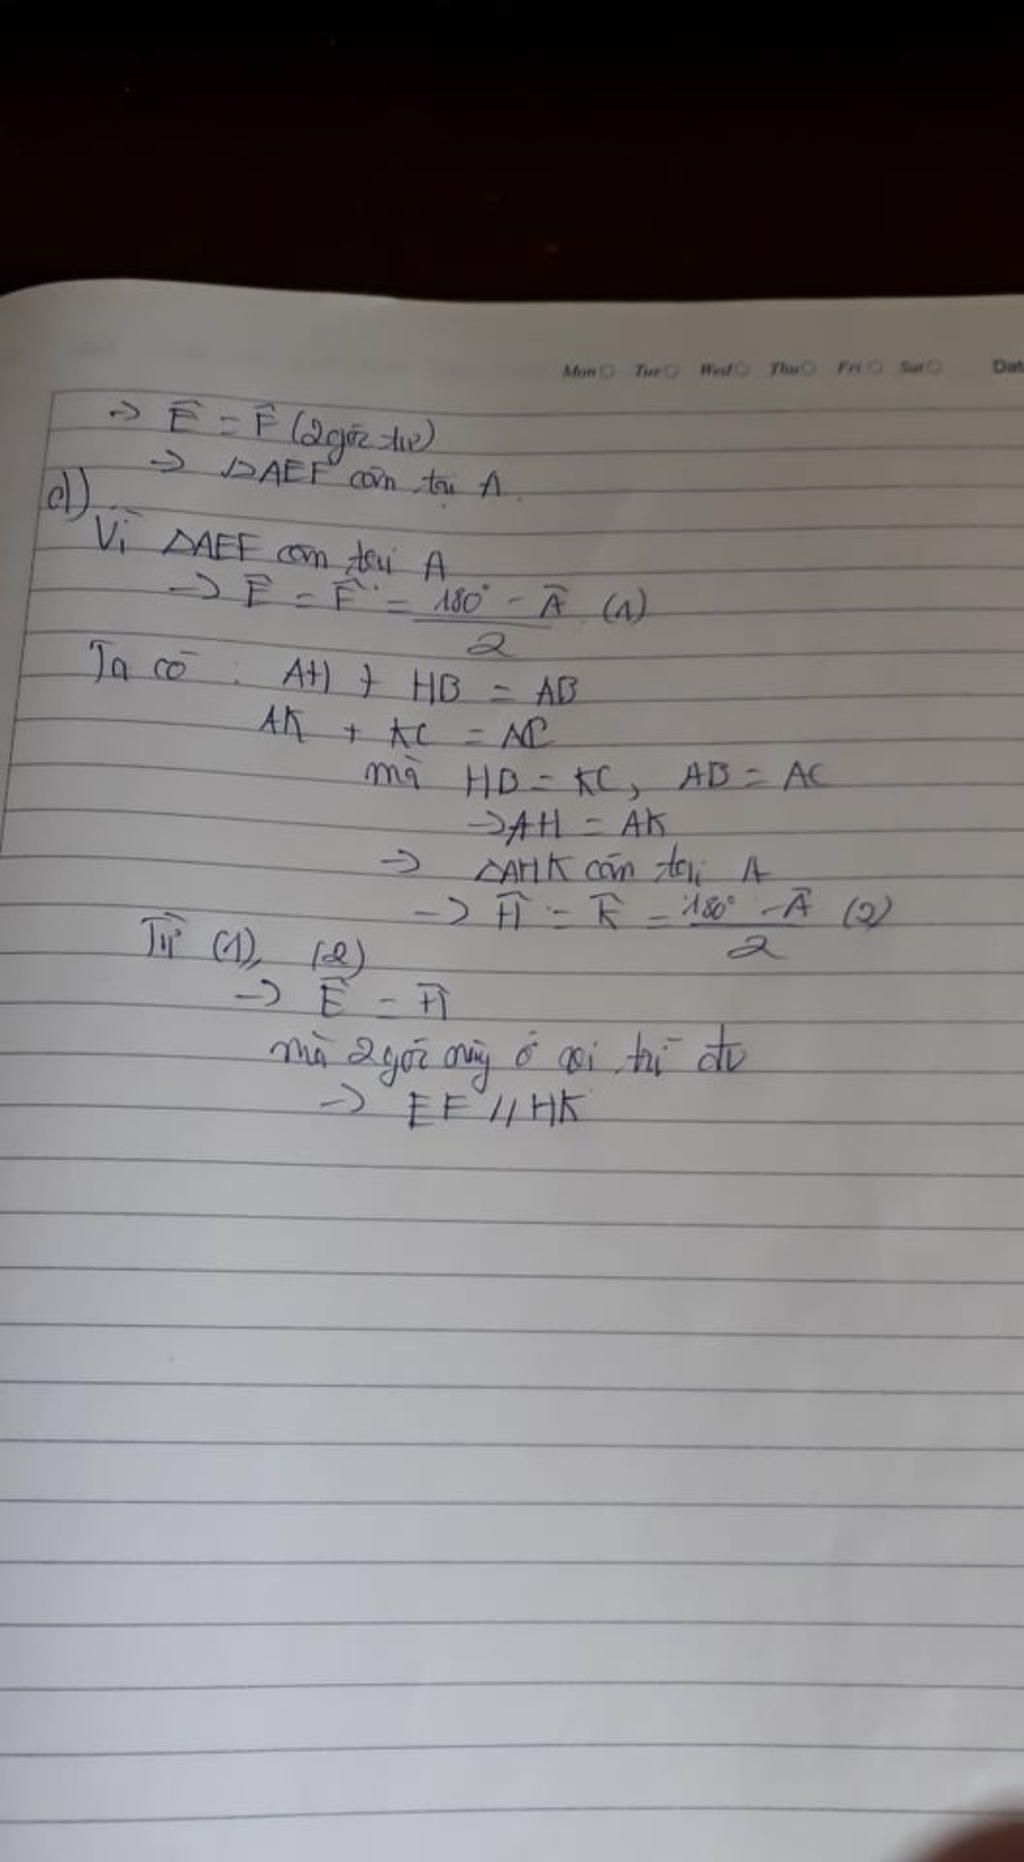 Mon Tue Wed Thu Fri Sat Dat
→ Ê = F̂ (2 góc tư)
→ △AEF cân tại A.
d)
Vì △AEF cân tại A
→ Ê = F̂ = 180° - Â / 2 (1)
Ta có : AH + HB = AB
AK + KC = AC
mà HB = KC, AB = AC
→ AH = AK
→ △AHK cân tại A
→ Ĥ = K̂ = 180° - Â / 2 (2)
Từ (1), (2)
→ Ê = Ĥ
mà 2 góc này ở vị trí đv
→ EF // HK